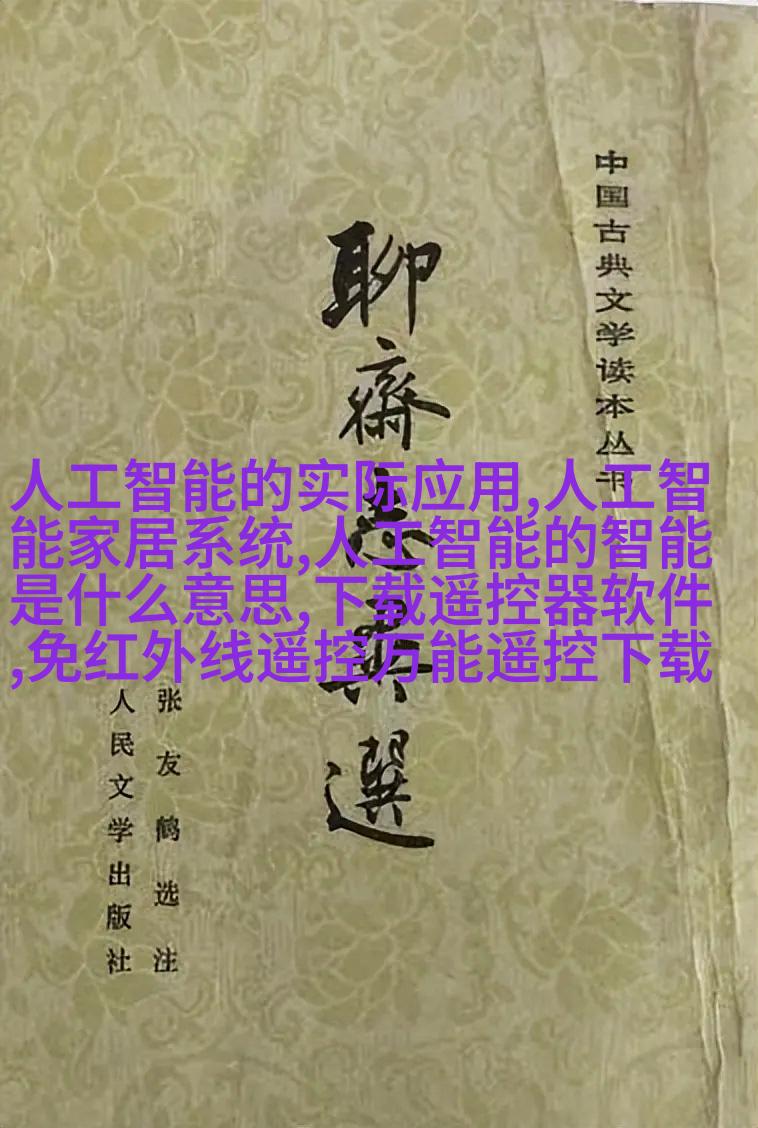 中国古典文学读本丛书
聊齋志異選
张友鹤选注
人民文学出版社
人工智能的实际应用,人工智
能家居系统,人工智能的智能
是什么意思,下载遥控器软件
,免红外线遥控万能遥控下载